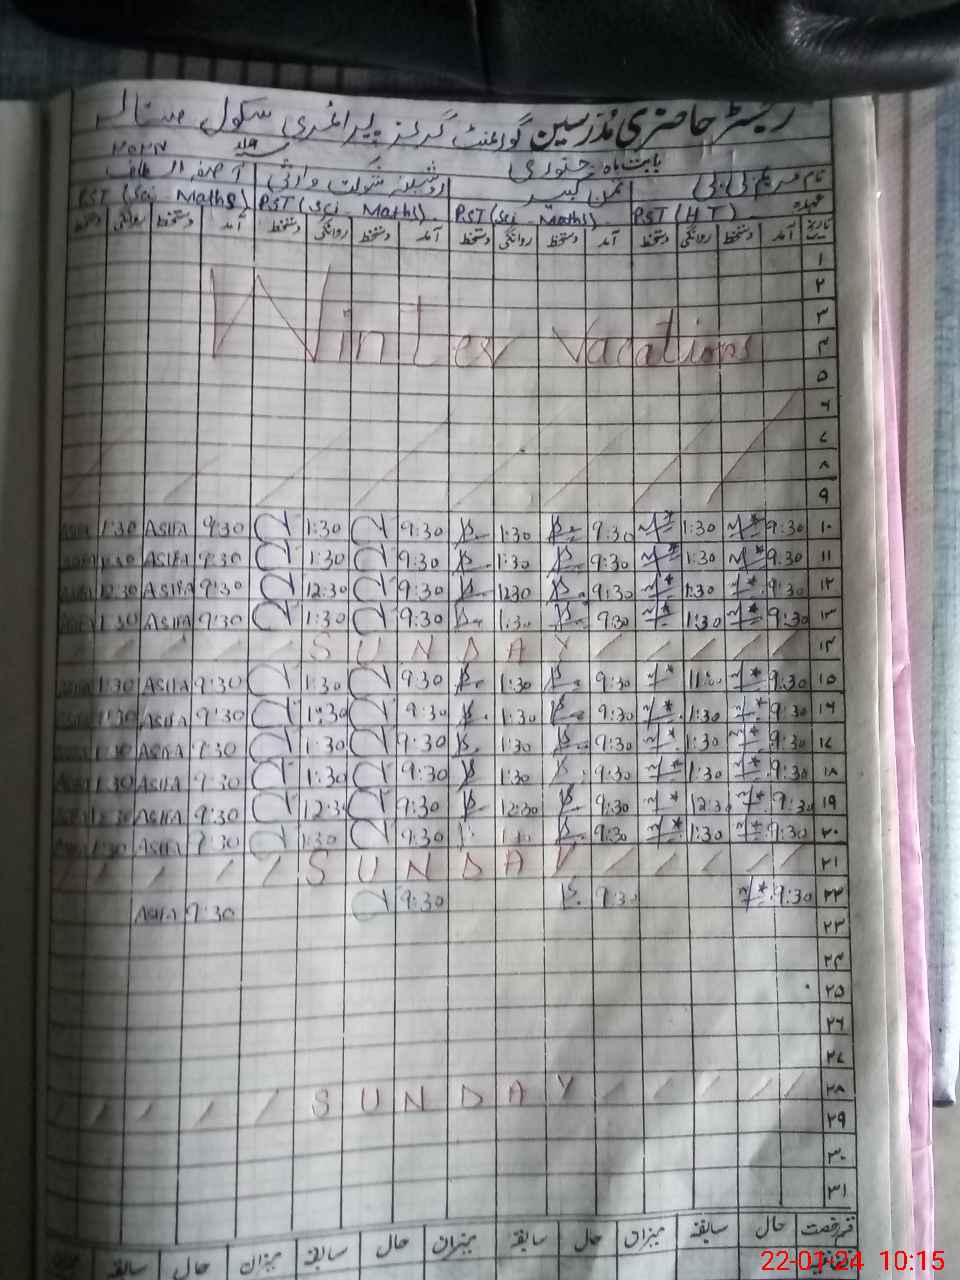 رجسٹر حاضری مدرسین گورنمنٹ گرلز پرائمری سکول
بابت ماہ جنوری ۲۰۲۴
نام مریم بی بی ثمن کبیر شوکت آصفہ الطاف
عہدہ PST (H T) PST (Sci - Maths) PST (Sci - Maths) PST (Sci - Maths)
تاریخ آمد دستخط روانگی دستخط آمد دستخط روانگی دستخط آمد دستخط روانگی دستخط آمد دستخط روانگی دستخط
۱
۲
۳
Winter vacations
۴
۵
۶
۷
۸
۹
۱۰ 9:30 1:30 9:30 1:30 9:30 1:30 9:30 ASIFA 1:30
۱۱ 9:30 1:30 9:30 1:30 9:30 1:30 9:30 ASIFA 1:30
۱۲ 9:30 1:30 9:30 1230 9:30 12:30 9:30 ASIFA 12:30
۱۳ 9:30 1:30 9:30 1:30 9:30 1:30 9:30 ASIFA 1:30
۱۴ SUNDAY
۱۵ 9:30 9:30 1:30 9:30 1:30 9:30 ASIFA 1:30
۱۶ 9:30 1:30 9:30 1:30 9:30 1:30 9:30 ASIFA 1:30
۱۷ 9:30 1:30 9:30 1:30 9:30 1:30 9:30 ASIFA 1:30
۱۸ 9:30 1:30 9:30 1:30 9:30 1:30 9:30 ASIFA 1:30
۱۹ 9:30 12:30 9:30 12:30 9:30 12:30 9:30 ASIFA 12:30
۲۰ 9:30 1:30 9:30 9:30 1:30 9:30 ASIFA 1:30
۲۱ SUNDAY
۲۲ 9:30 9:30 9:30 9:30 ASIFA
۲۳
۲۴
۲۵
۲۶
۲۷
۲۸ SUNDAY
۲۹
۳۰
۳۱
قسم رخصت حال سابقہ میزان حال سابقہ میزان حال سابقہ میزان حال سابقہ میزان
22-01-24 10:15